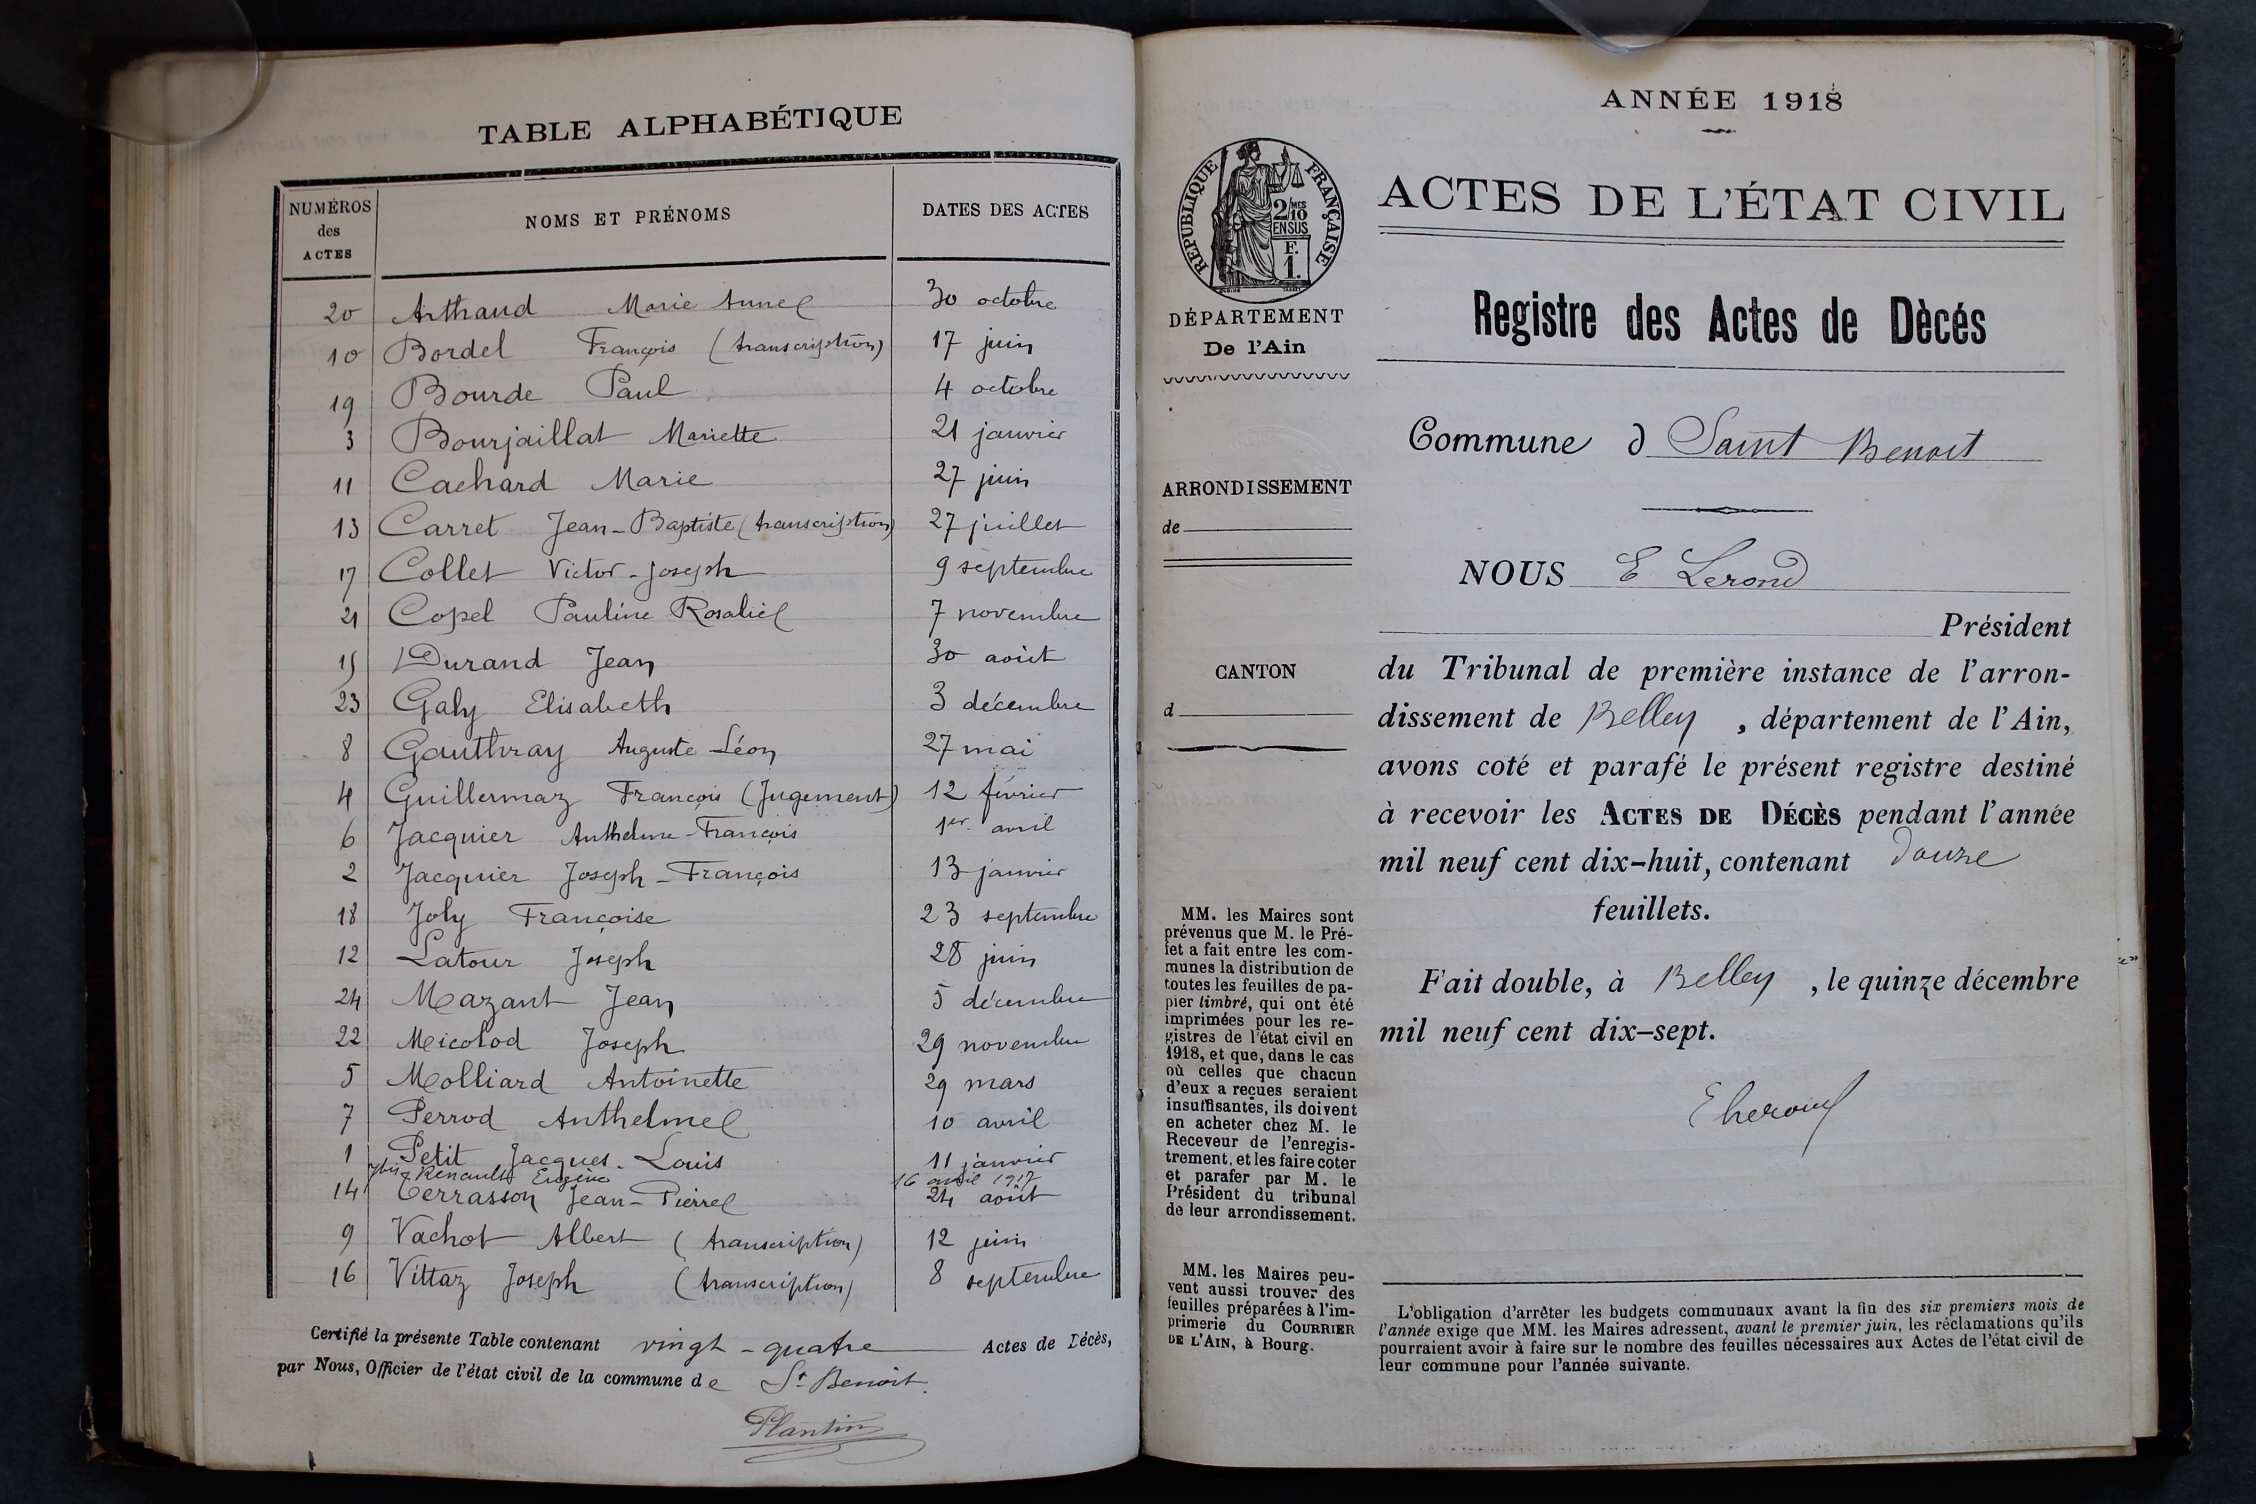 TABLE ALPHABÉTIQUE
NUMÉROS des ACTES NOMS ET PRÉNOMS DATES DES ACTES
20 Arthaud Marie Anne 30 octobre
10 Bordel François (transcription) 17 juin
19 Bourde Paul 4 octobre
3 Bourjaillat Mariette 21 janvier
11 Cachard Marie 27 juin
13 Carret Jean-Baptiste (transcription) 27 juillet
17 Collet Victor-Joseph 9 septembre
21 Copel Pauline Rosalie 7 novembre
15 Durand Jean 30 août
23 Galy Elisabeth 3 décembre
8 Gauthray Auguste Léon 27 mai
4 Guillermaz François (Jugement) 12 février
6 Jacquier Anthelme-François 1er. avril
2 Jacquier Joseph-François 13 janvier
18 Joly Françoise 23 septembre
12 Latour Joseph 28 juin
24 Mazant Jean 5 décembre
22 Micolod Joseph 29 novembre
5 Molliard Antoinette 29 mars
7 Perrod Anthelme 10 avril
1 Petit Jacques-Louis 11 janvier
7bis Renault Eugène 16 avril 1917
14 Terrasson Jean-Pierre 24 août
9 Vachot Albert (transcription) 12 juin
16 Vittaz Joseph (transcription) 8 septembre
Certifié la présente Table contenant vingt-quatre Actes de Décès,
par Nous, Officier de l'état civil de la commune de St Benoit.
Plantin
ANNÉE 1918
RÉPUBLIQUE FRANÇAISE
2/10 MES
EN SUS
F.
1.
DÉPARTEMENT
De l'Ain
ARRONDISSEMENT
de
CANTON
d
MM. les Maires sont
prévenus que M. le Pré-
fet a fait entre les com-
munes la distribution de
toutes les feuilles de pa-
pier timbré, qui ont été
imprimées pour les re-
gistres de l'état civil en
1918, et que, dans le cas
où celles que chacun
d'eux a reçues seraient
insuffisantes, ils doivent
en acheter chez M. le
Receveur de l'enregis-
trement, et les faire coter
et parafer par M. le
Président du tribunal
de leur arrondissement.
MM. les Maires peu-
vent aussi trouver des
feuilles préparées à l'im-
primerie du COURRIER
DE L'AIN, à Bourg.
ACTES DE L'ÉTAT CIVIL
Registre des Actes de Dècés
Commune d Saint Benoit
NOUS E Lerond
Président
du Tribunal de première instance de l'arron-
dissement de Belley, département de l'Ain,
avons coté et parafé le présent registre destiné
à recevoir les ACTES DE DÉCÈS pendant l'année
mil neuf cent dix-huit, contenant douze
feuillets.
Fait double, à Belley, le quinze décembre
mil neuf cent dix-sept.
L'obligation d'arrêter les budgets communaux avant la fin des six premiers mois de
l'année exige que MM. les Maires adressent, avant le premier juin, les réclamations qu'ils
pourraient avoir à faire sur le nombre des feuilles nécessaires aux Actes de l'état civil de
leur commune pour l'année suivante.